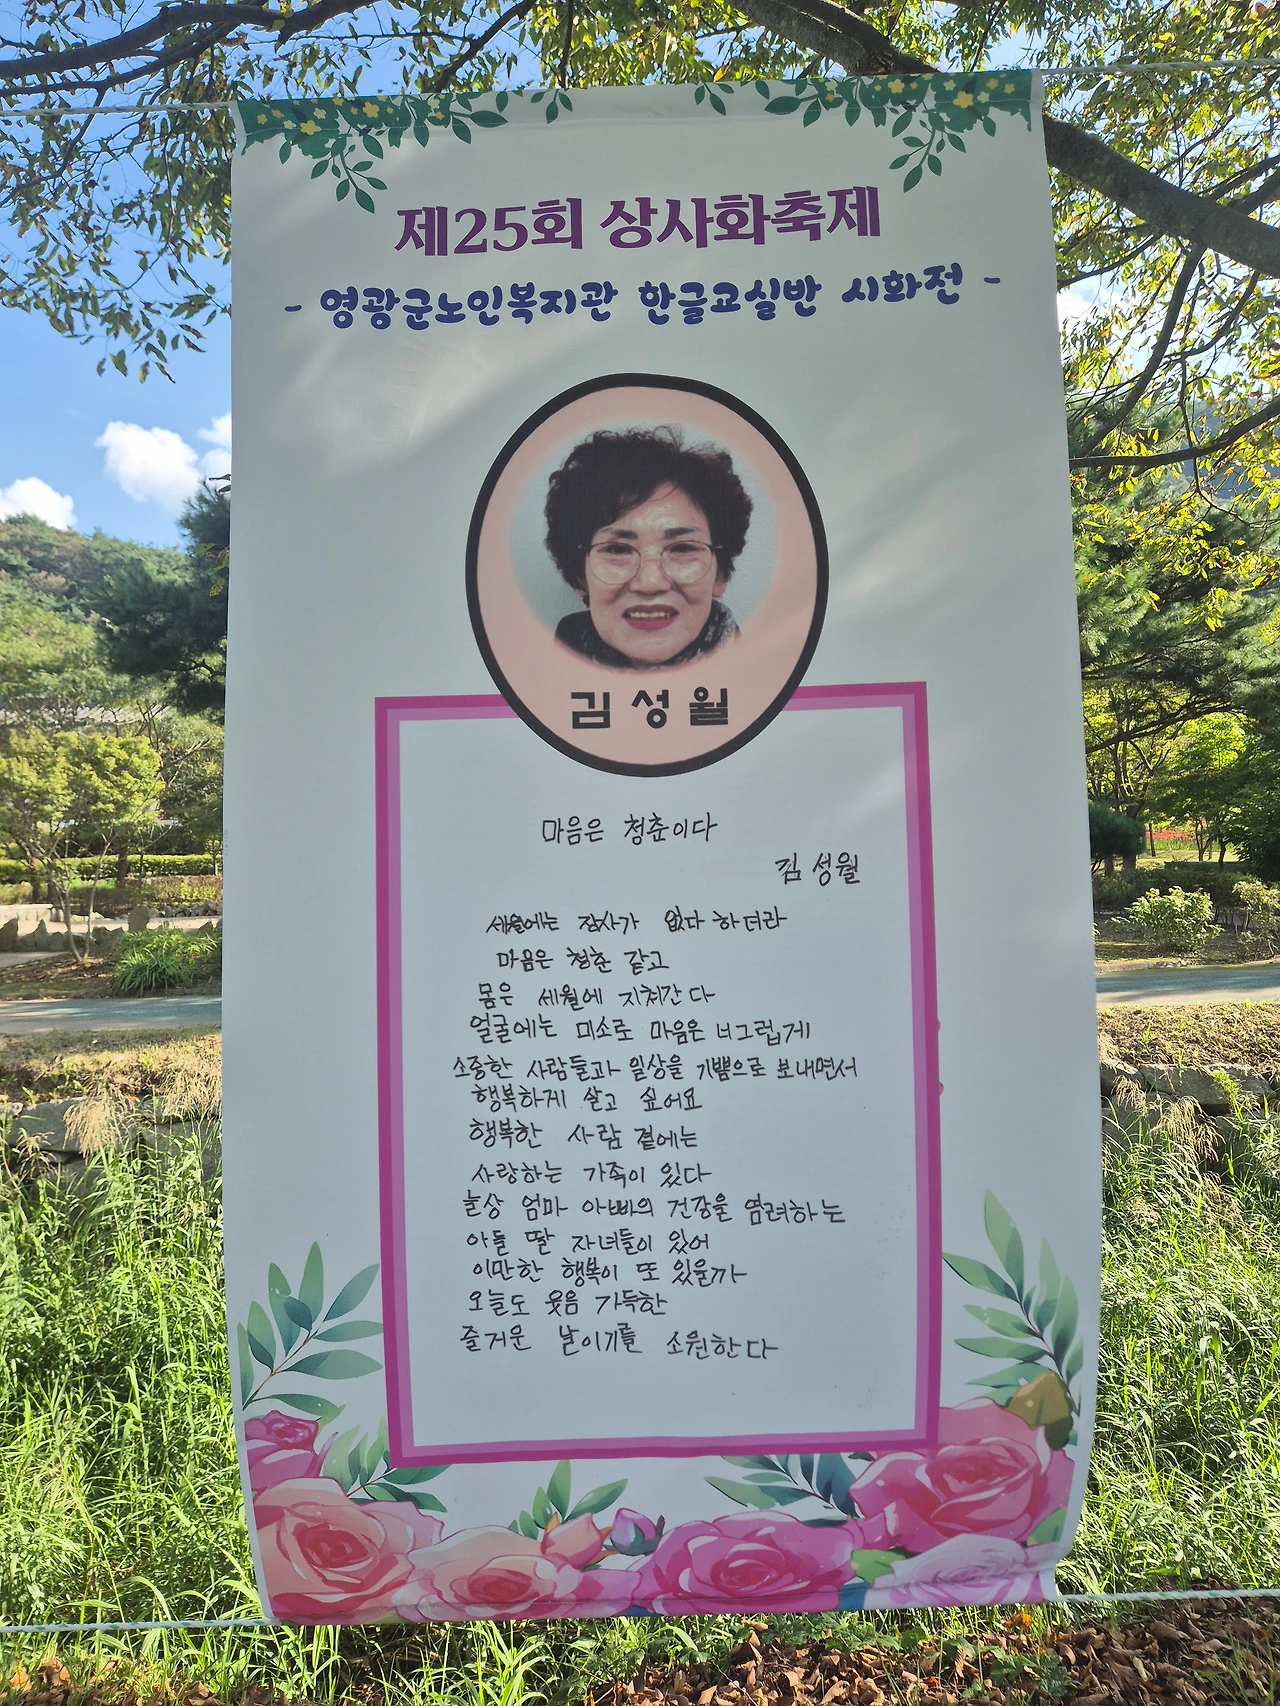 제25회 상사화축제
- 영광군노인복지관 한글교실반 시화전 -
김성월
마음은 청춘이다
김성월
세월에는 장사가 없다 하더라
마음은 청춘 같고
몸은 세월에 지쳐간다
얼굴에는 미소로 마음은 너그럽게
소중한 사람들과 일상을 기쁨으로 보내면서
행복하게 살고 싶어요
행복한 사람 곁에는
사랑하는 가족이 있다
늘상 엄마 아빠의 건강을 염려하는
아들 딸 자녀들이 있어
이만한 행복이 또 있을까
오늘도 웃음 가득한
즐거운 날이기를 소원한다